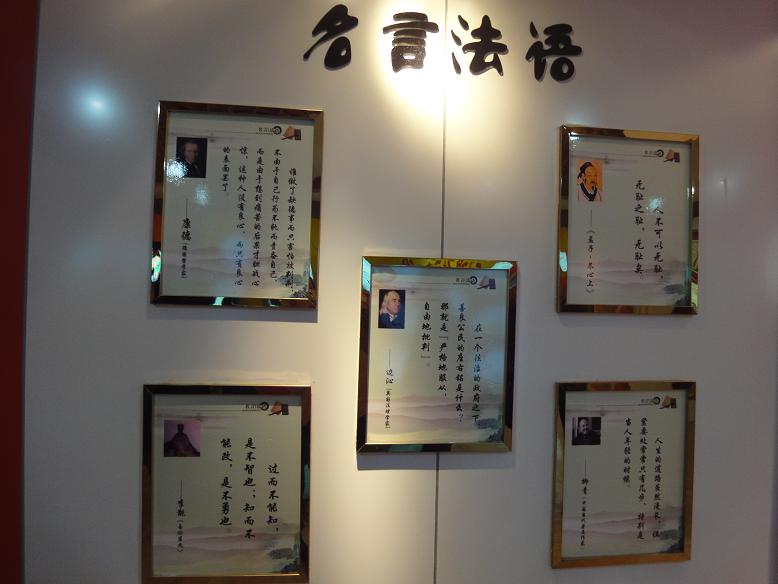 名言法语
谁做了缺德事而只害怕被判刑，
不由于自己行为不轨而责备自己
而是由于想到痛苦的后果才胆战心
惊，这种人没有良心，而只有良心
的表面罢了。
——康德（德国哲学家）
人不可以无耻，
无耻之耻，无耻矣。
——《孟子·尽心上》
在一个法治的政府之下，
善良公民的座右铭是什么？
那就是“严格地服从，
自由地批判”。
——边沁（英国法理学家）
过而不能知，
是不智也；知而不
能改，是不勇也。
——李觏
人生的道路虽然漫长，但
紧要处常常只有几步，特别是
当人年轻的时候。
——柳青（中国当代著名作家）